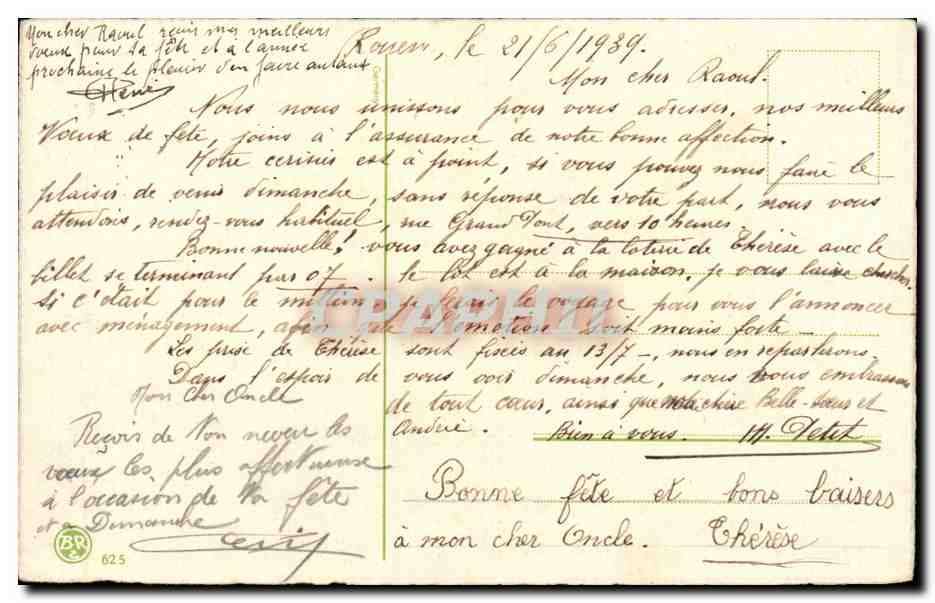 Mon cher Raoul reçois mes meilleurs
voeux pour ta fête et à l'année
prochaine le plaisir d'en faire autant
Rouen, le 21/6/1939.
Mon cher Raoul.
Nous nous unissons pour vous adresser, nos meilleurs
Voeux de fête, joins à l'assurance de notre bonne affection.
Notre cerisier est à point, si vous pouvez nous faire le
plaisir de venir dimanche, sans réponse de votre part, nous vous
attendons, rendez-vous habituel, rue Grand Pont, vers 10 heures.
Bonne nouvelle! vous avez gagné à la loterie de Thérèse avec le
billet se terminant par 07. le lot est à la maison, je vous laisse chercher.
si c'était pour le million je ferais le voyage pour vous l'annoncer
avec ménagement, afin que l'émotion soit moins forte -
Les prix de Thérèse sont fixés au 13/7 -, nous en reparlerons.
Dans l'espoir de vous voir dimanche, nous vous embrassons
de tout coeur, ainsi que ma chère Belle-Soeur et
André. Bien à vous. M. Petit
Mon Cher Oncle
Reçois de Ton neveu les
voeux les plus affectueuse
à l'occasion de Ta fête
et a Dimanche
Bonne fête et bons baisers
à mon cher Oncle. Thérèse
BR
625
CPAPHIL